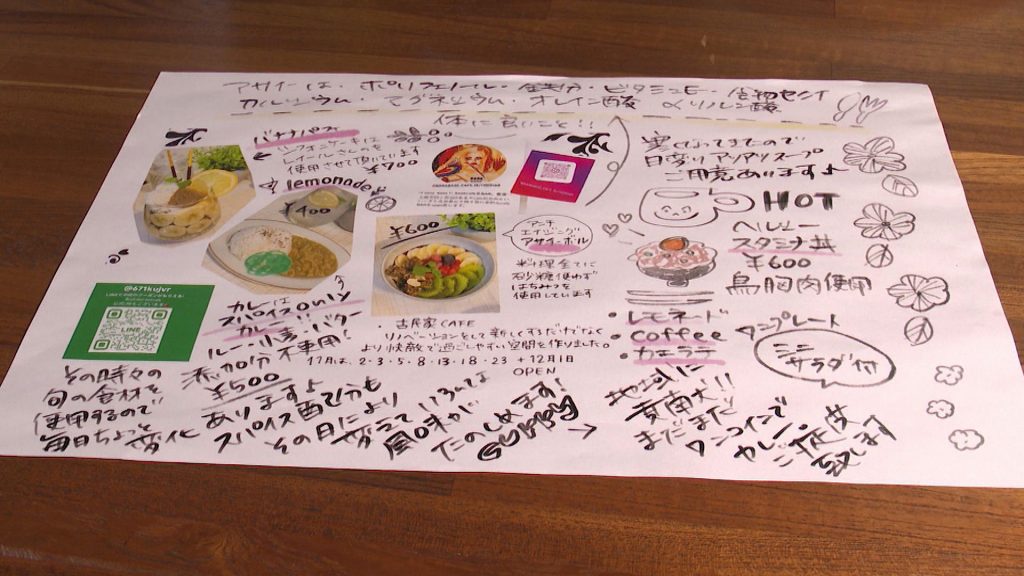 アサイーは、ポリフェノール・鉄分・ビタミンE・食物センイ
カルシウム・マグネシウム・オレイン酸 リノレン酸
体に良いこと!!
バナナパフェ
使用させて頂いています
¥700
lemonade
¥400
カレーは
スパイスonly
カレー
ルー・小麦・バター
添加分不使用!
¥500
あります
@671kujvr
LINE
その時々の
旬の食材を
使用するので
毎日ちょっと変化
スパイス配分も
その日により
変えて、いろんな
風味が
たのしめます!
¥600
アンチ
エイジング
アサイーボール
料理全てに
砂糖使わず
はちみつを
使用しています
古民家CAFE
リノベーションをして新しくするだけでなく
より快適で過ごしやすい空間を作りました。
11月は、2・3・5・8・13・18・23 + 12月1日
OPEN
寒くなってきたので
日変りアツアツスープ
ご用意あります
HOT
ヘルシー
スタミナ丼
¥600
鳥胸肉使用
・レモネード
・coffee
・カフェラテ
ワンプレート
ミニ
サラダ付
地域に
貢献犬!!
まだまだ
ワンコインで
カレー・丼
ご提供
致します